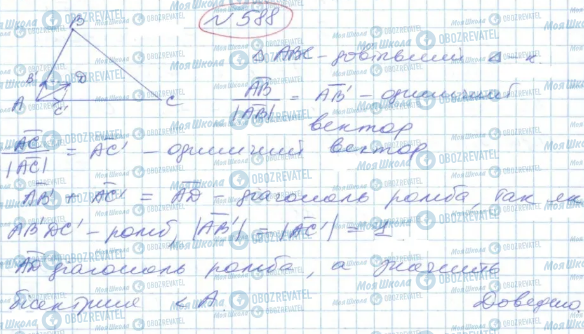 N 588
B
B' D
A C' C
△ ABC - довільний △-к.
AB/|AB| = AB' - одиничний
вектор
AC/|AC| = AC' - одиничний вектор
AB' + AC' = AD - діагональ ромба, так як
AB'DC' - ромб, |AB'| = |AC'| = 1
AD діагональ ромба, а значить
бісектриса <A Доведено